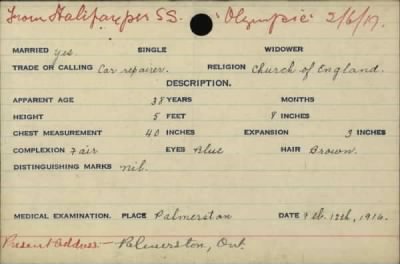 From Halifax per S.S. "Olympic" 2/6/17.
MARRIED yes. SINGLE WIDOWER
TRADE OR CALLING Car repairer. RELIGION Church of England.
DESCRIPTION.
APPARENT AGE 38 YEARS MONTHS
HEIGHT 5 FEET 8 INCHES
CHEST MEASUREMENT 40 INCHES EXPANSION 3 INCHES
COMPLEXION Fair EYES Blue HAIR Brown.
DISTINGUISHING MARKS nil.
MEDICAL EXAMINATION. PLACE Palmerston DATE Feb. 12th, 1916.
Present Address - Palmerston, Ont.